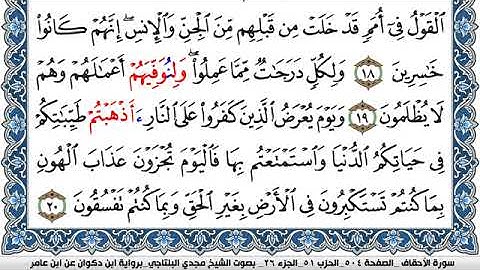 ٱلۡقَوۡلُ فِيٓ أُمَمٖ قَدۡ خَلَتۡ مِن قَبۡلِهِم مِّنَ ٱلۡجِنِّ وَٱلۡإِنسِۖ إِنَّهُمۡ كَانُواْ
خَٰسِرِينَ ١٨ وَلِكُلّٖ دَرَجَٰتٞ مِّمَّا عَمِلُواْۖ وَلِنُوَفِّيَهُمۡ أَعۡمَٰلَهُمۡ وَهُمۡ
لَا يُظۡلَمُونَ ١٩ وَيَوۡمَ يُعۡرَضُ ٱلَّذِينَ كَفَرُواْ عَلَى ٱلنَّارِ ءَأَذۡهَبۡتُمۡ طَيِّبَٰتِكُمۡ
فِي حَيَاتِكُمُ ٱلدُّنۡيَا وَٱسۡتَمۡتَعۡتُم بِهَا فَٱلۡيَوۡمَ تُجۡزَوۡنَ عَذَابَ ٱلۡهُونِ
بِمَا كُنتُمۡ تَسۡتَكۡبِرُونَ فِي ٱلۡأَرۡضِ بِغَيۡرِ ٱلۡحَقِّ وَبِمَا كُنتُمۡ تَفۡسُقُونَ ٢٠
سورة الأحقاف_ الصفحة ٥٠٤_ الحزب ٥١_ الجزء ٢٦_ بصوت الشيخ مجدي البلتاجي_برواية ابن ذكوان عن ابن عامر